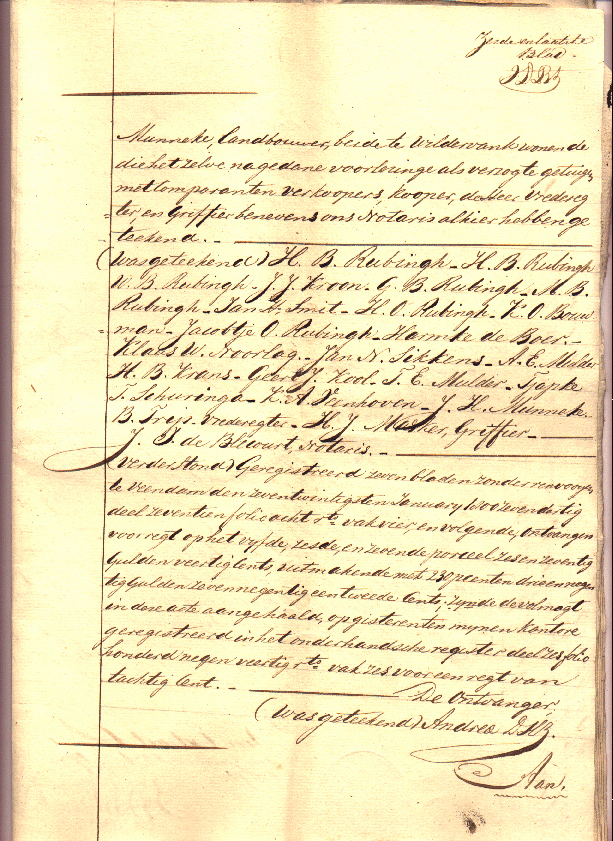 Zesde en laatste
Blad.
Munneke, Landbouwer, beide te Wildervank wonende
die het zelve na gedane voorlezinge als verzogte getuigen
met Comparanten verkoopers, kooper, de Heer Vredereg=
=ter, en Griffier benevens ons Notaris alhier hebben ge
=teekend. _
(Was geteekend) H. B. Rubingh _ H. B. Rubingh
W. B. Rubingh _ J. J. Kroon _ G. B. Rubingh _ A. B.
Rubingh _ Jan H. Smit _ H. O. Rubingh _ K. O. Bouw
=man _ Jacobtje O. Rubingh _ Harmke de Boer. _
Klaas W. Noorlag _ Jan N. Tikkens _ A. E. Mulder
H. B. Krans _ Geert J. Kool _ T. E. Mulder _ Tjapke
T. Schuringa _ K. A. Veenhoven _ J. H. Munneke _
B. Trip, Vrederegter _ H. J. Masker, Griffier _
J. S. de Blécourt, Notaris. _
(Verder stond) Geregistreerd zeven bladen zonder renvooijen
te Veendam den zeventwintigsten January 1800 zevendertig
deel zeventien folio acht rto. vak vier, en volgende, ontvangen
voor regt op het vyfde, zesde, en zevende perceel zes en zeventig
Gulden veertig Cents, uitmakende met 23 opcenten drieennegen
tig Gulden zevennegentig een tweede Cents; zynde de volmagt
in deze acte aangehaald, op gisteren ten mynen kantore
geregistreerd in het onderhandsche register deel zes folio
honderd negen veertig rto. vak zes voor een regt van
tachtig Cent. _
De Ontvanger
(Was geteekend) Andreæ
Aan.